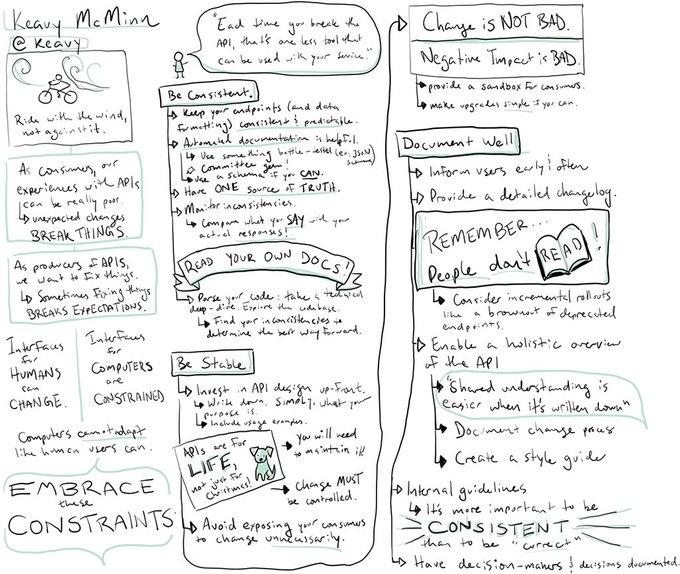 Keavy McMinn
@keavy
Ride with the wind,
not against it.
As consumers, our
experiences with APIs
can be really poor.
↳ unexpected changes
BREAK THINGS.
As producers of APIS,
we want to fix things.
↳ Sometimes fixing things
BREAKS EXPECTATIONS.
Interfaces
for
HUMANS
can
CHANGE.
Interfaces
for
COMPUTERS
are
CONSTRAINED
Computers cannot adapt
like human users can.
EMBRACE
these
CONSTRAINTS
"Each time you break the
API, that's one less tool that
can be used with your service."
Be Consistent.
Keep your endpoints (and data
formatting) consistent & predictable.
Automated documentation is helpful.
↳ Use something battle-tested (ex. JSON
schema)
Committee gem!
↳ Use a schema if you CAN.
Have ONE source of TRUTH.
Monitor inconsistencies.
↳ Compare what you SAY with your
actual responses!
READ YOUR OWN DOCS!
Parse your code: take a technical
deep-dive. Explore the codebase.
↳ Find your inconsistencies to
determine the best way forward.
Be Stable
Invest in API design up-front.
↳ Write down, simply, what your
purpose is.
↳ Include usage examples.
APIs are for
LIFE,
not just for
Christmas!
You will need
to maintain it!
change MUST
be controlled.
Avoid exposing your consumers
to change unnecessarily.
Change is NOT BAD.
Negative Impact is BAD.
provide a sandbox for consumers.
make upgrades simple if you can.
Document Well
Inform users early & often
Provide a detailed changelog.
REMEMBER...
People don't READ!
↳ Consider incremental rollouts
like a brownout of deprecated
endpoints.
Enable a holistic overview
of the API
"Shared understanding is
easier when it's written down"
Document change process
Create a style guide
Internal guidelines
↳ It's more important to be
CONSISTENT
than to be "correct"
Have decision-makers & decisions documented.